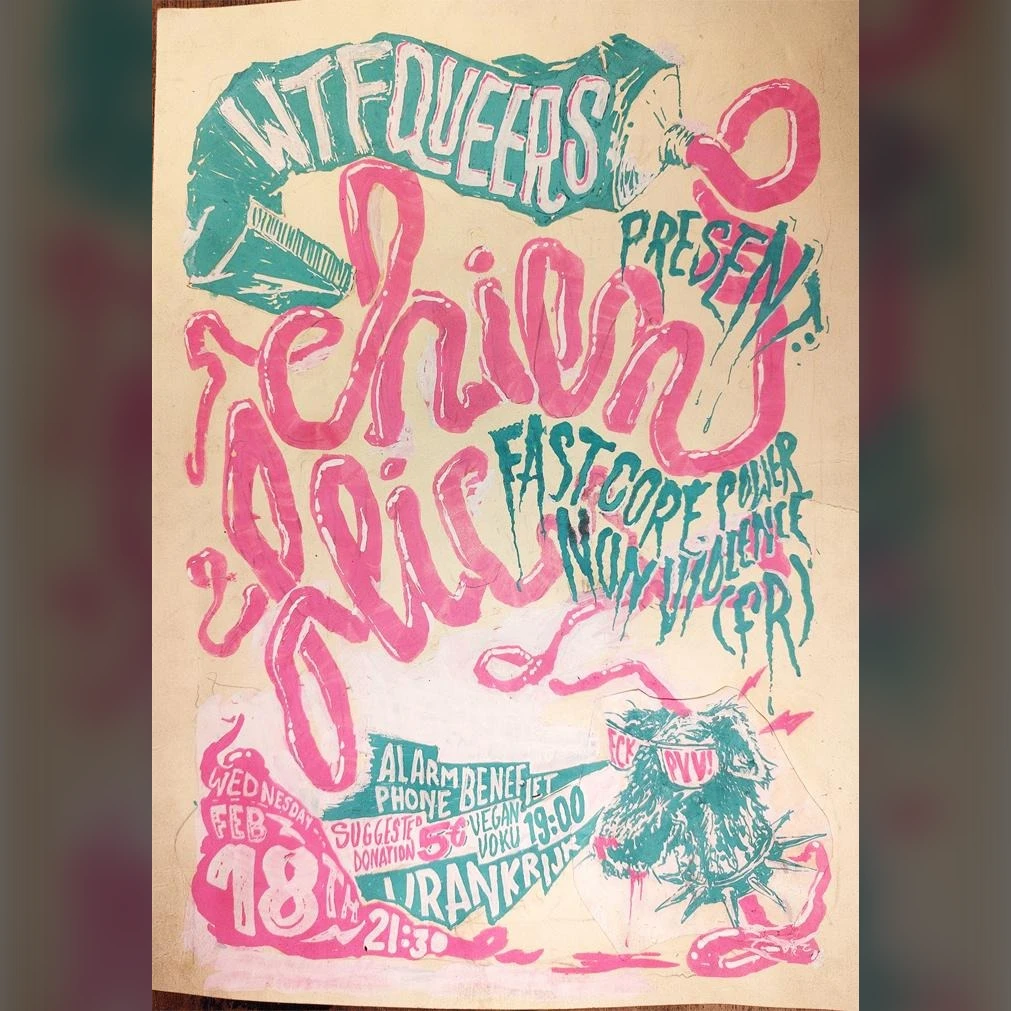 WTFQUEERS
PRESENT:
chien
flic
FASTCORE POWER
NON VIOLENCE
(FR)
ECK
PVV!
ALARM
PHONE BENEFIET
SUGGESTED
DONATION 5€
VEGAN
VOKU 19:00
VRANKRIJK
WEDNESDAY
FEB
18TH
21:30